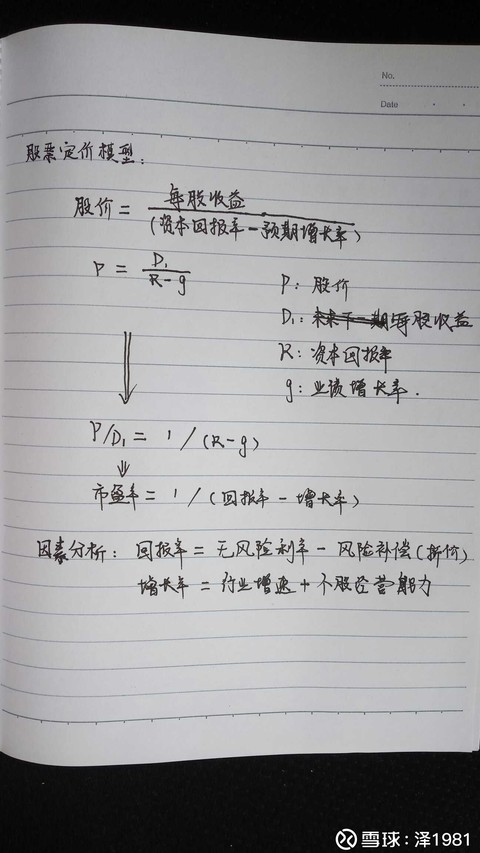 No.
Date
股票定价模型:
股价 = 每股收益 / (资本回报率 - 预期增长率)
P = D₁ / R-g
P: 股价
D₁: 未来下一期每股收益
R: 资本回报率
g: 业绩增长率.
P/D₁ = 1 / (R-g)
市盈率 = 1 / (回报率 - 增长率)
因素分析: 回报率 = 无风险利率 - 风险补偿(折价)
增长率 = 行业增速 + 个股经营能力
雪球: 泽1981